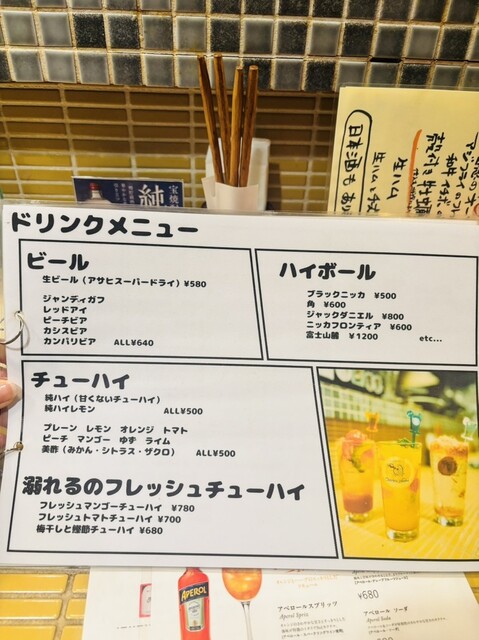 宝焼
純
日本酒も
生ハム
ドリンクメニュー
ビール
生ビール（アサヒスーパードライ）¥580
ジャンディガフ
レッドアイ
ピーチビア
カシスビア
カンパリビア ALL¥640
ハイボール
ブラックニッカ ¥500
角 ¥600
ジャックダニエル ¥800
ニッカフロンティア ¥600
富士山麓 ¥1200 etc...
チューハイ
純ハイ（甘くないチューハイ）
純ハイレモン ALL¥500
プレーン レモン オレンジ トマト
ピーチ マンゴー ゆず ライム
美酢（みかん・シトラス・ザクロ） ALL¥500
溺れるのフレッシュチューハイ
フレッシュマンゴーチューハイ ¥780
フレッシュトマトチューハイ ¥700
梅干しと鰹節チューハイ ¥680
APEROL
アペロールスプリッツ
Aperol Spritz
¥680
アペロール ソーダ
Aperol Soda